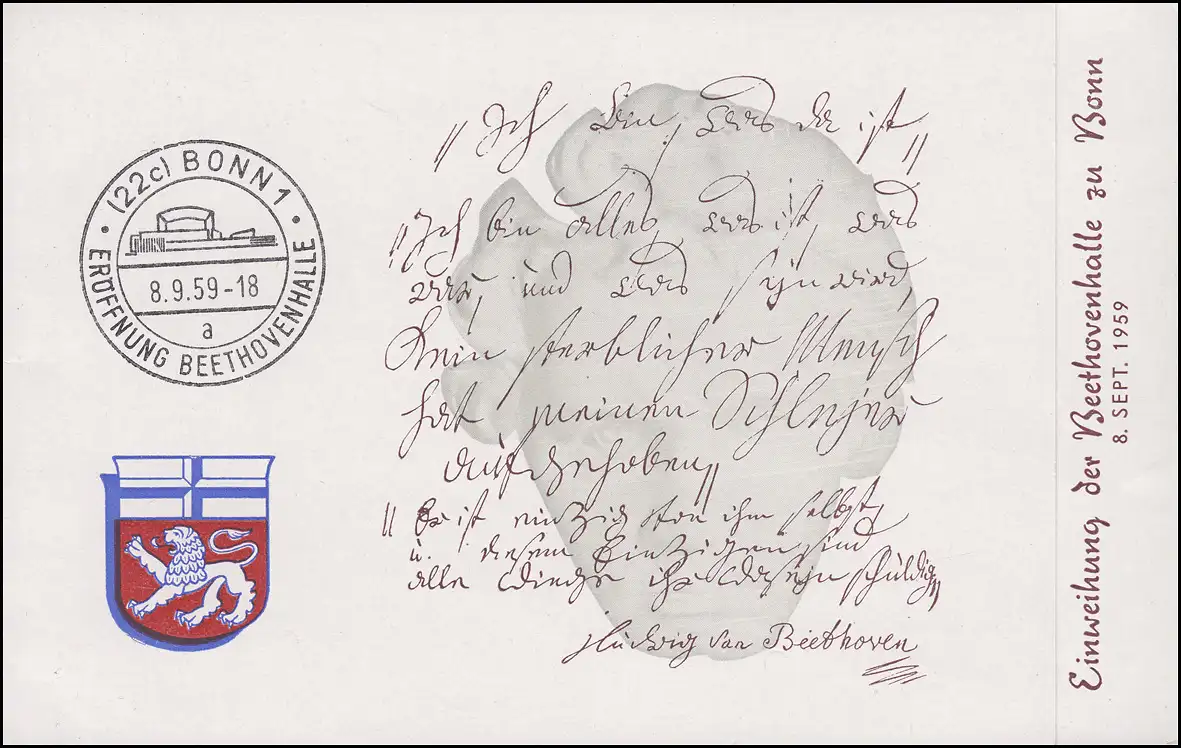 (22c) BONN 1
8.9.59-18
a
ERÖFFNUNG BEETHOVENHALLE
"Ich bin, was da ist"
"Ich bin alles, was ist, was
war, und was seyn wird,
Kein sterblicher Mensch
hat meinen Schlejer
aufgehoben"
"Er ist einzig von ihm selbst,
u. diesem Einzigen sind
alle Dinge ihr Daseyn schuldig"
Ludwig van Beethoven
Einweihung der Beethovenhalle zu Bonn
8. SEPT. 1959